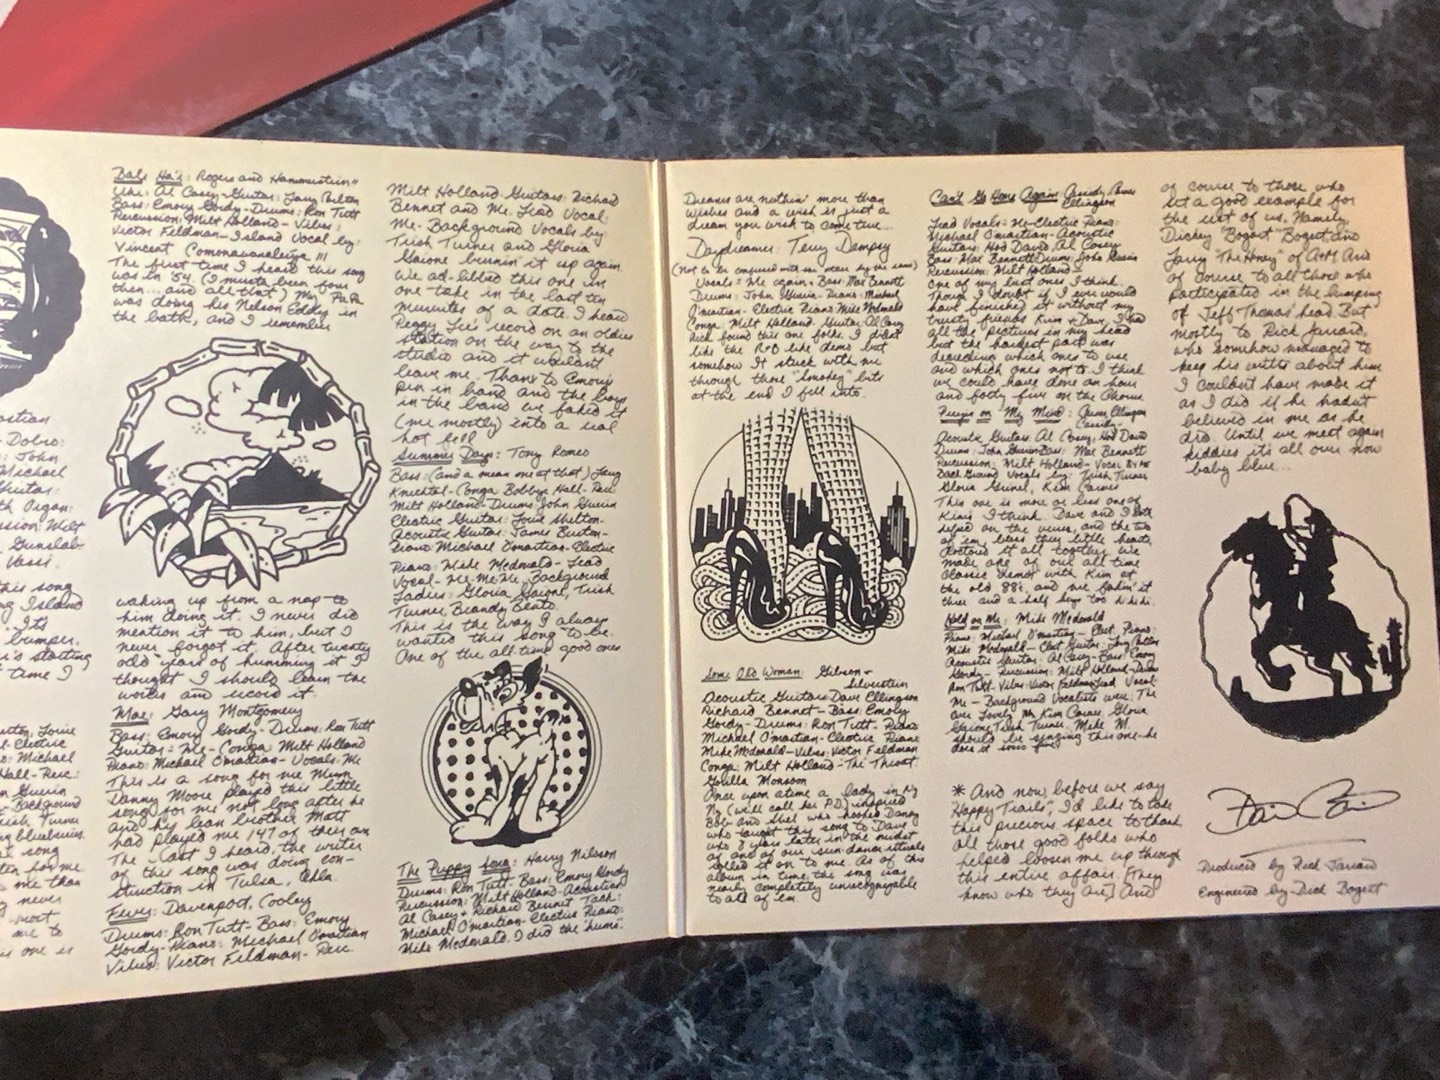 astian
Dobro:
John
Michael
Guitar:
th Organ:
ssion: Milt
Gunslab
Vassi.
this song
ng Island
Its
bumper.
's starting
time I
Louie
Electric
Michael
Hall - Perc:
n Guerin
Background
Trish Turner
ng blueberries.
song
ten for me
me than
never
most
me to
is one is
Bali Ha'i: Rogers and Hammerstein"
Uke: Al Casey - Guitar: Louie Shelton
Bass: Emory Gordy - Drums: Ron Tutt
Percussion: Milt Holland - Vibes:
Victor Feldman - Island Vocal by:
Vincent
The first time I heard this song
was in '54 (I musta been four
then... and all that) My PaPa
was doing his Nelson Eddy in
the bath, and I remember
waking up from a nap to
him doing it. I never did
mention it to him, but I
never forgot it. After twenty
odd years of humming it I
thought I should learn the
words and record it.
Mae: Gary Montgomery
Bass: Emory Gordy - Drums: Ron Tutt
Guitar = Me - Conga: Milt Holland
Piano: Michael O'martian - Vocals: Me
This is a song for me Mum
Danny Moore played this little
song for me not long after he
and his lean brother Matt
had played me 147 of their own
The last I heard, the writer
of this song was doing con-
struction in Tulsa, Okla.
Fever: Davenport, Cooley
Drums: Ron Tutt - Bass: Emory
Gordy - Piano: Michael O'martian
Vibes: Victor Feldman - Perc
Milt Holland Guitars: Richard
Bennet and Me. Lead Vocal:
Me - Background Vocals by:
Trish Turner and Gloria
burnin' it up again.
We ad-libbed this one in
one take in the last ten
minutes of a date. I heard
Peggy Lee's record on an oldies
station on the way to the
studio and it wouldnt
leave me. Thanx to Emory's
pen in hand and the boys
in the band we faked it
(me mostly) into a real
hot
Summer Days: Tony Romeo
Bass: (and a mean one at that) Larry
Knechtel - Conga Bobbye Hall - Perc
Milt Holland - Drums: John Guerin
Electric Guitar: Louie Shelton -
Acoustic Guitar: James Burton -
Piano Michael O'martian - Electric
Piano: Mike Mcdonald - Lead
Vocal - Me - Me - Me, Background
Ladies: Gloria Trish
Turner, Brandy
This is the way I always
wanted this song to be.
One of the all time good ones
The Puppy Song: Harry Nilsson
Drums: Ron Tutt - Bass: Emory Gordy
Percussion: Milt Holland - Acoustics
Al Casey + Richard Bennet Tack:
Michael O'martian - Electric Piano:
Mike Mcdonald. I did the "hums".
Dreams are nothin' more than
wishes and a wish is just a
dream you wish to come true...
Daydreamer: Terry Dempsy
(Not to be confused with the man by the same)
Vocals = Me again - Bass: Max Bennett
Drums: John Guerin - Piano: Michael
O'martian - Electric Piano Mike McDonald
Conga: Milt Holland - Guitar: Al Casey
Rick found this one folks. I didnt
like the R+B like demo but
somehow it stuck with me
through those "smokey" bits
at the end I fell into.
Some Old Woman: Gibson +
Silverstein
Acoustic Guitars Dave Ellingson
Richard Bennet - Bass: Emory
Gordy - Drums: Ron Tutt - Piano:
Michael O'martian - Electric Piano
Mike McDonald - Vibes: Victor Feldman
Conga: Milt Holland - The Throat
Gorilla Monsoon
Once upon atime a lady in N.J.
Ny (will call her P.D.) inspired
Bob and Shel who hooked Danny
who taught this song to Dave E.
who 8 years later in the midst
of one of our sun dance rituals
on to me. As of this
album in time the song was
nearly completely unrecognizable
to all of 'em.
Can't Go Home Again: Cassidy, Carnes
Ellingson
Lead Vocals: Me - Electric Piano:
Michael O'martian - Acoustic
Guitars: Hod David, Al Casey
Bass: Max Bennett Drums: John Guerin
Percussion: Milt Holland -
One of my last ones I think.
Though I doubt if I ever would
have finished it without my
trusty friends Kim + Dave. I had
all the pictures in my head
but the hardest part was
deciding which ones to use
and which ones not to. I think
we could have done an hour
and forty five on the chorus
Preyin on My Mind: Carnes Ellingson
Cassidy -
Acoustic Guitars: Al Casey, Hod David
Drums: John Guerin Bass: Max Bennett
Percussion: Milt Holland - Vocal
Back Ground Vocals by: Trish Turner
Gloria Kim Carnes
This one is more or less one of
Kims I think. Dave and I both
helped on the verses, and the two
of 'em, bless they little hearts,
doctored it all together. We
make one of our all time
classic demos with Kim at
the old 88s, and me fakin' it
three and a half keys too hi hi hi.
Hold on Me: Mike McDonald
Piano: Michael O'martian - Elect. Piano:
Mike Mcdonald - Elect Guitar: Larry Carlton
Acoustic Guitar: Al Casey - Bass Emory
Gordy - Percussion: Milt Holland - Drums
Ron Tutt - Vibes: Victor Feldman Lead Vocal:
Me - Background Vocalists were: The
Ever Lovely Kim Carnes, Gloria
Trish Turner. Mike M.
should be singing this one - he
does it some fine
* And now, before we say
"Happy Trails", I'd like to take
this precious space to thank
all those good folks who
helped loosen me up through
this entire affair. [They
know who they are] And
of course to those who
set a good example for
the rest of us. Namely,
Dickey "Bogart" Bogert, and
Larry "The Honey" of A+M And
of course to all those who
participated in the bumping
of Jeff Thomas' head. But
mostly to Rick Jarrard,
who somehow managed to
keep his wriths about him
I couldnt have made it
as I did if he hadnt
believed in me as he
did. Until we meet again
kiddies its all over now
baby blue...
Produced by Rick Jarrard
Engineered by Dick Bogert